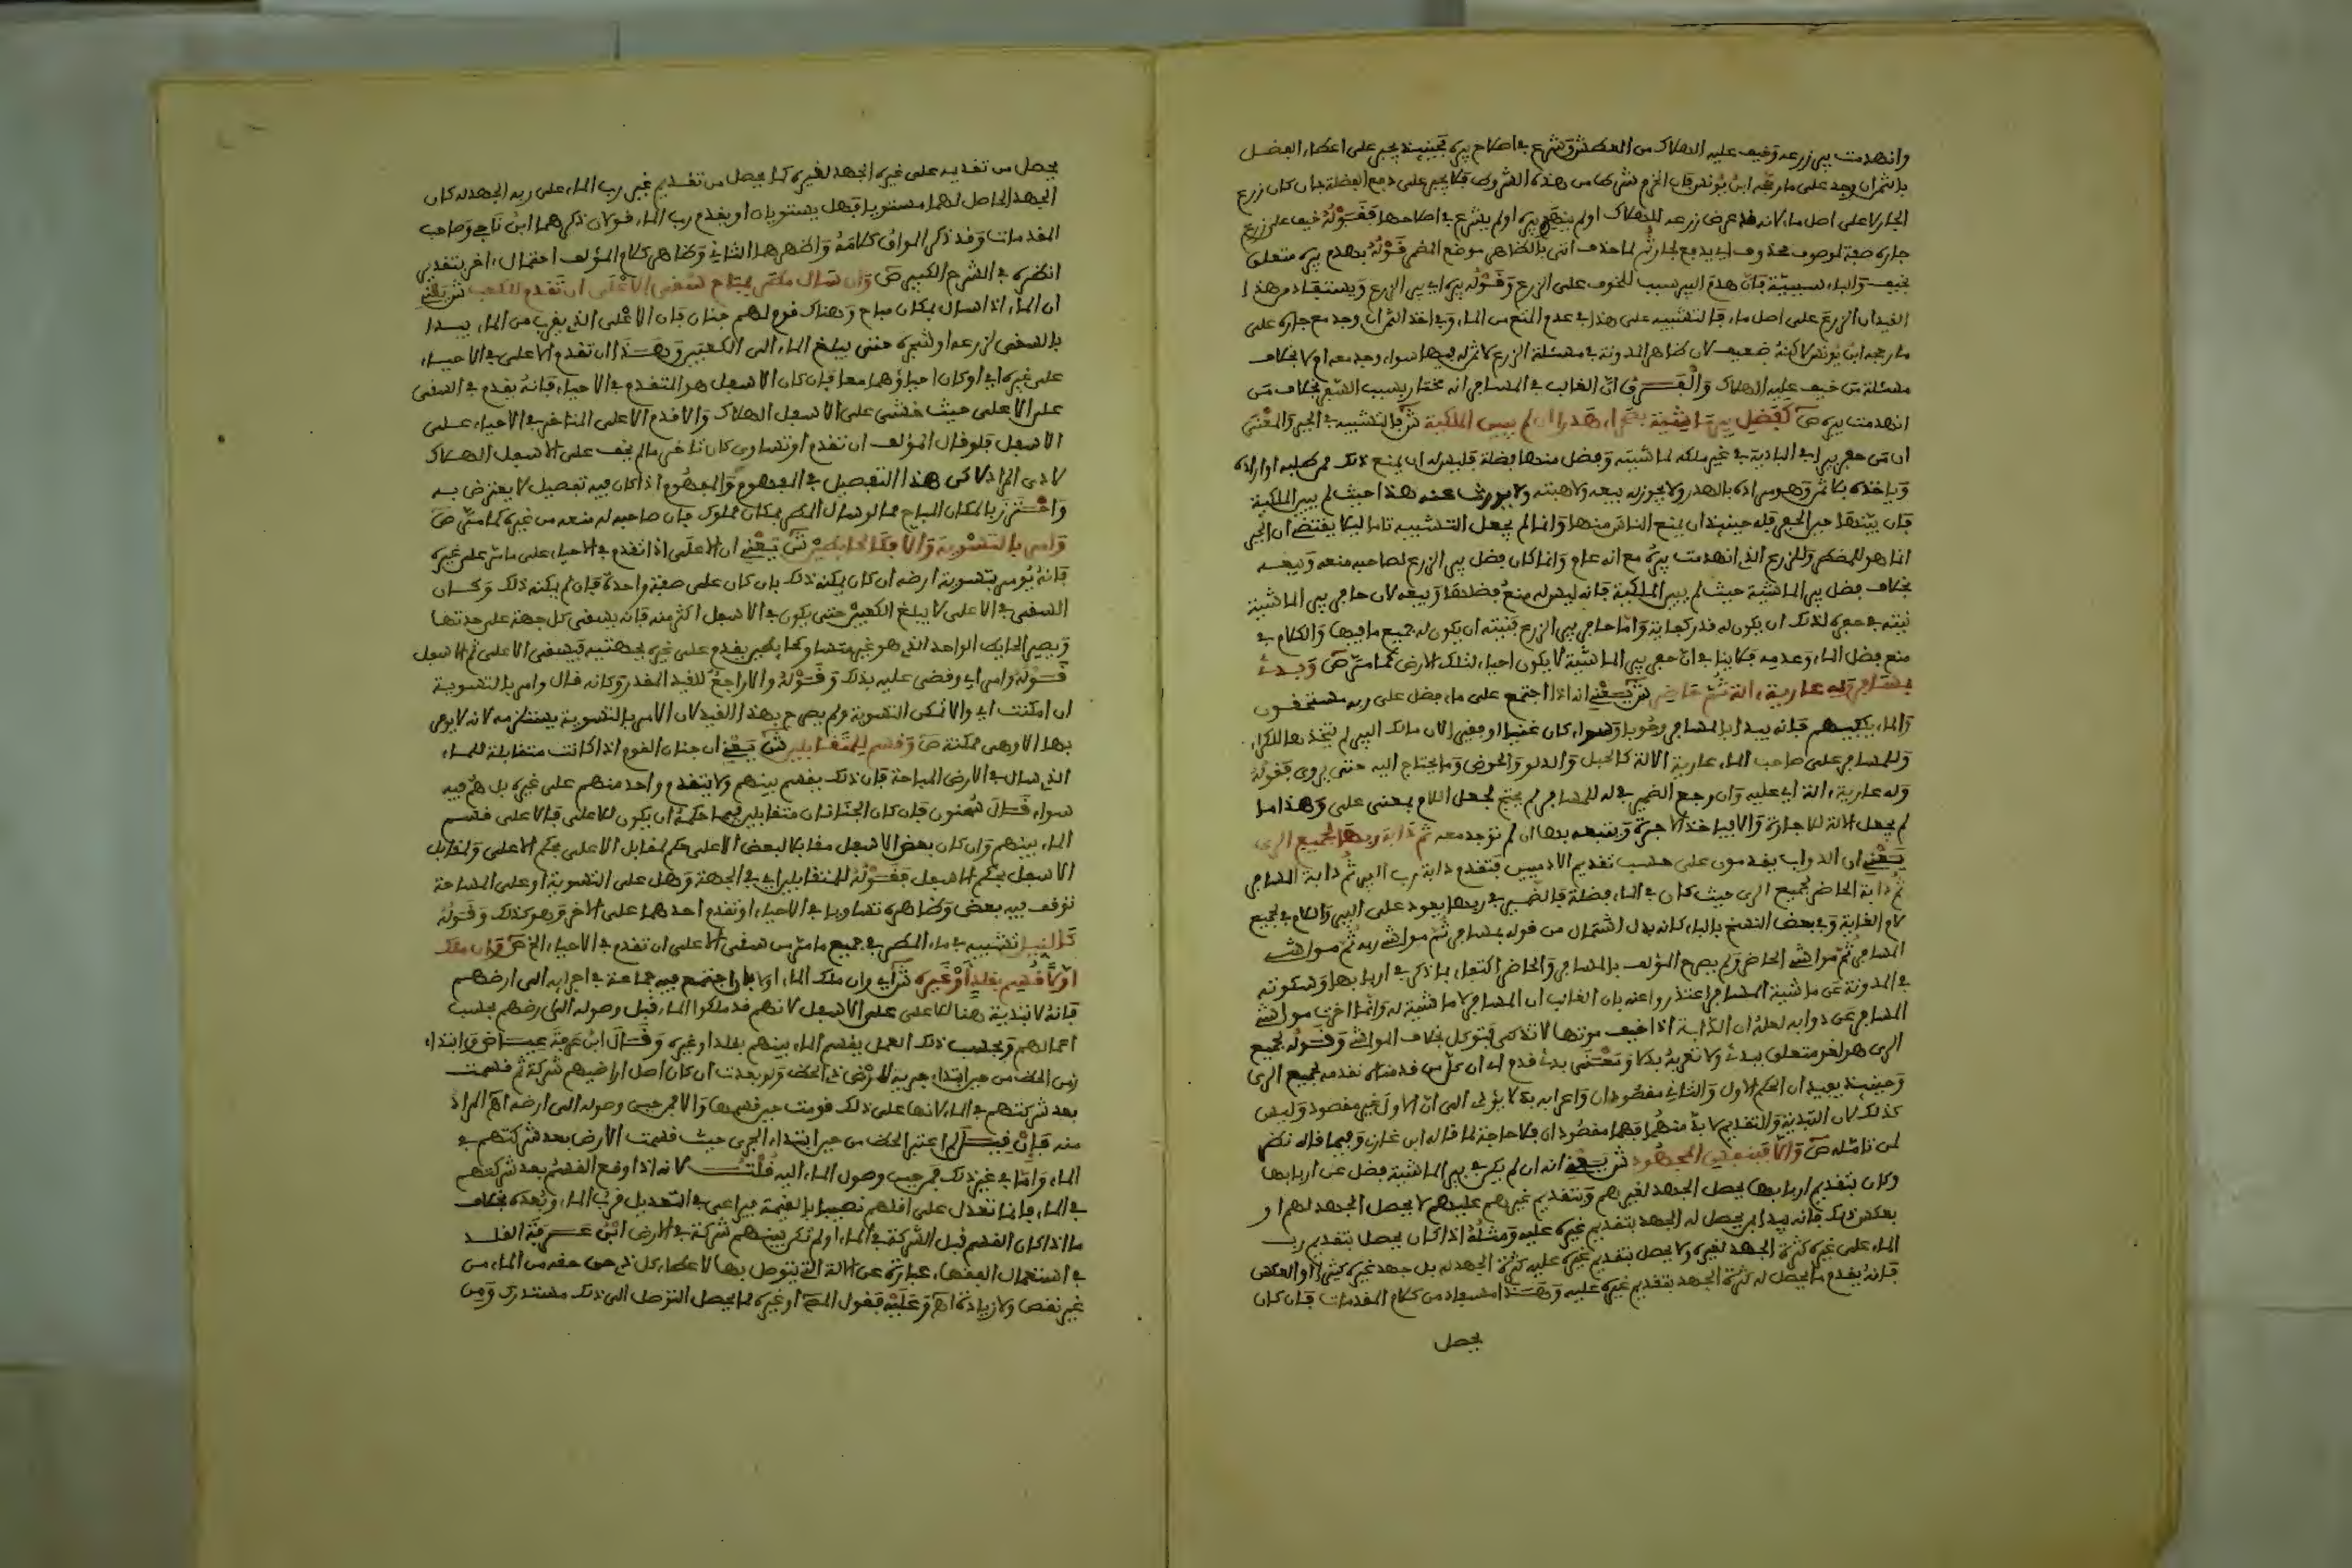 وانهدمت بير زرعه وخيف عليه الهلاك من العطش وشرع في اصلاح بيره فحينئذ يجبر على اعطاء الفضل
بالثمن ان وجد على ما رجحه ابن يونس فان انخرم شرط من هذه الشروط فلا يجبر على دفع الفضلة بان كان زرع
الجار لا على اصل ماء لانه قد عرض زرعه للهلاك او لم ينهدم بيره او لم يشرع في اصلاحها فقوله خيف على زرع
جاره صفة لموصوف محذوف اي يدفع لجار ثم لما حذف اتى بالظاهر موضع المضمر قوله بهدم بيره متعلق
بخيف والباء سببية فان هدم البير سبب للخوف على الزرع وقوله بيره اي بير الزرع ويستفاد من هذا
القيد ان الزرع على اصل ماء فالتشبيه على هذا في عدم المنع من الماء وفي اخذ الثمن ان وجد مع جاره على
ما رجحه ابن يونس لاكنه ضعيف لان ظاهر المدونة في مسئلة الزرع لا ثمن له فيها سواء وجد معه ام لا بخلاف
مسئلة من خيف عليه الهلاك والفرق ان الغالب في المسافر انه مختار بسبب السفر بخلاف من
انهدمت بيره ص كفضل بير ماشية بصحراء هدرا ان لم يبين الملكية ش التشبيه في الجبر والمعنى
ان من حفر بيرا في البادية في غير ملكه لماشيته وفضل منها فضلة فليس له ان يمنع ذلك ممن طلبه او اراده
وياخذه بلا ثمن وهو مراده بالهدر ولا يجوز له بيعه ولا هبته ولا يورث عنه هذا حيث لم يبين الملكية
فان بينها حين الحفر فله حينئذ ان يمنع الناس منها وانما لم يجعل التشبيه تاما ليلا يقتضي ان الجبر
انما هو للمضطر وللزرع الذي انهدمت بيره مع انه عام وانما كان فضل بير الزرع لصاحبه منعه وبيعه
بخلاف فضل بير الماشية حيث لم يبين الملكية فانه ليس له منع فضلها وبيعه لان حافر بير الماشية
نيته في حفره لذلك ان يكون له قدر كفايته واما حافر بير الزرع فنيته ان يكون له جميع مافيها والكلام في
منع فضل الماء وعدمه فلا ينافي ان حفر بير الماشية لا يكون احياء لتلك الارض كما مر ص وبدئ
بمسافر وله عارية الة ثم حاضر ش يعني انه اذا اجتمع على ماء فضل على ربه مستحقون
والماء يكفيهم فانه يبدا بالمسافر وجوبا وسواء كان غنيا او فقيرا لان مالك البير لم يتخذها للكراء
وللمسافر على صاحب الماء عارية الالة كالحبل والدلو والحوض وما يحتاج اليه حتى يروى فقوله
وله عارية الة اي عليه وان رجع الضمير في له للمسافر لم يحتج لجعل اللام بمعنى على وهذا ما
لم يجعل الالة للاجارة والا فياخذ الاجرة ويتبعه بها ان لم توجد معه ثم دابة ربها لجميع الري
يعني ان الدواب يقدمون على حسب تقديم الادميين فتقدم دابة رب البير ثم دابة المسافر
ثم دابة الحاضر لجميع الري حيث كان في الماء فضلة فالضمير في ربها يعود على البير واللام في لجميع
لام الغاية وفي بعض النسخ بالباء كانه بدل اشتمال من قوله بمسافر ثم مواشي ربه ثم مواشي
المسافر ثم مواشي الحاضر ولم يصرح المؤلف بالمسافر والحاضر اكتفاء بما ذكر في اربابها وسكوته
في المدونة عن ماشية المسافر اعتذروا عنه بان الغالب ان المسافر لا ماشية له وانما اخرت مواشي
المسافر عن دوابه لعله ان الدابة اذا خيف موتها لا تذكى فتوكل بخلاف المواشي وقوله لجميع
الري هو لغو متعلق ببدئ ولا تعربه بدلا ومعنى بدئ قدم اي ان كل من قدمناه نقدمه بجميع الري
وحينئذ يفيد ان الحكم الاول والثاني مقصودان واعرابه بدلا يؤدي الى ان الاول غير مقصود وليس
كذلك لان التبدية والتقديم لا بد منهما فهما مقصودان فلا حاجة لما قاله ابن غازي وفيما قاله نظر
لمن تامله ص والا فبنفس المجهود ش يعني انه ان لم يكن في بير الماشية فضل عن اربابها
وكان بتقديم اربابها يحصل الجهد لغيرهم وبتقديم غيرهم عليهم لا يحصل الجهد لهم او
بعكس ذلك فانه يبدا بمن يحصل له الجهد بتقديم غيره عليه ومثله اذا كان يحصل بتقديم رب
الماء على غيره كثرة الجهد لغيره ولا يحصل بتقديم غيره عليه كثرة الجهد له بل جهد غيره كثير او العكس
فانه يقدم ما يحصل له كثرة الجهد بتقديم غيره عليه وهذا مستفاد من كلام المقدمات فان كان
يحصل
يحصل من تقديمه على غيره الجهد لغيره كما يحصل من تقديم غير رب الماء على ربه الجهد له كان
الجهد الحاصل لهما مستويا فهل يستويان او يقدم رب الماء قولان ذكرهما ابن ناجي وصاحب
المقدمات وقد ذكر المواق كلامه واظهرهما الثاني وظاهر كلام المؤلف احتمال اخر بتقديمي
انظره في الشرح الكبير ص وان سال مطر بمباح سقي الاعلى ان تقدم للكعب ش يعني
ان الماء اذا سال بمكان مباح وهناك قوم لهم جنان فان الاعلى الذي يقرب من الماء يبدا
بالسقي لزرعه او شجره حتى يبلغ الماء الى الكعبين وهذا ان تقدم الاعلى في الاحياء
على غيره اي او كان احياؤهما معا فان كان الاسفل هو المتقدم في الاحياء فانه يقدم في السقي
على الاعلى حيث خشي على الاسفل الهلاك والا قدم الاعلى المتاخر في الاحياء على
الاسفل فلو قال المؤلف ان تقدم او تساوى كان تاخر مالم يخف على الاسفل الهلاك
لادى المراد لاكن هذا التفصيل في المفهوم والمفهوم اذا كان فيه تفصيل لا يعترض به
واحترز بالمكان المباح مما لو سال المطر بمكان مملوك فان صاحبه له منعه من غيره كما مر ص
وامر بالتسوية والا فكحائطين ش يعني ان الاعلى اذا تقدم في الاحياء على مامر على غيره
فانه يؤمر بتسوية ارضه ان كان يمكنه ذلك بان كان على صفة واحدة فان لم يمكنه ذلك وكان
السقي في الاعلى لا يبلغ الكعبين حتى يكون في الاسفل اكثر منه فانه يسقي كل جهة على حدتها
ويصير الحائط الواحد الذي هو غير متساو كحائطين يقدم على غيره بجهتيه فيسقى الاعلى ثم الاسفل
قوله وامر اي وقضي عليه بذلك وقوله والا راجع للقيد المقدر وكانه قال وامر بالتسوية
ان امكنت اي والا تمكن التسوية ولم يصرح بهذا القيد لان الامر بالتسوية يستلزمه لانه لا يومر
بها الا وهي ممكنة ص وقسم للمتقابلين ش يعني ان جنان القوم اذا كانت متقابلة للماء
الذي سال في الارض المباحة فان ذلك يقسم بينهم ولا يتقدم واحد منهم على غيره بل هم فيه
سواء قال سحنون فان كان الجنانان متقابلين فيما حكمه ان يكون للاعلى فالاعلى قسم
الماء بينهم وان كان بعض الاسفل مقابلا لبعض الاعلى حكم لمقابل الاعلى بحكم الاعلى ولمقابل
الاسفل بحكم الاسفل فقوله للمتقابلين اي في الجهة وهل على التسوية او على المساحة
توقف فيه بعض وظاهره تساويا في الاحياء او تقدم احدهما على الاخر وهو كذلك وقوله
كالنيل تشبيه في ماء المطر في جميع مامر من سقي الاعلى ان تقدم في الاحياء الخ ص وان ملك
اولا قسم بقلد او غيره ش اي وان ملك الماء اولا بان اجتمع فيه جماعة في اجرايه الى ارضهم
فانه لا تبدية هنا للاعلى على الاسفل لانهم قد ملكوا الماء قبل وصوله الى ارضهم بحسب
اعمالهم وبحسب ذلك العمل يقسم الماء بينهم بقلد او غيره وقال ابن عرفة عياض وابتداء
زمن الحظ من حين ابتداء جريه لارض ذي الحظ ولو بعدت ان كان اصل اراضيهم شركة ثم قسمت
بعد شركتهم في الماء لانها على ذلك قومت حين قسمها والا فمن حين وصوله الى ارضه اه المراد
منه فان قيل لم اعتبر الحظ من حين ابتداء الجري حيث قسمت الارض بعد شركتهم في
الماء واما في غير ذلك فمن حين وصول الماء اليه قلت لانه اذا وقع القسم بعد شركتهم
في الماء فانما تعدل على اقلهم نصيبا بالقيمة فيراعى في التعديل قرب الماء وبعده بخلاف
ما اذا كان القسم قبل الشركة في الماء او لم تكن بينهم شركة في الارض ابن عرفة القلد
في استعمال الفقهاء عبارة عن الالة التي يتوصل بها لاعطاء كل ذي حق حقه من الماء من
غير نقص ولا زيادة اه وعليه فقول المص او غيره لما يحصل التوصل الى ذلك مستدرك ومن